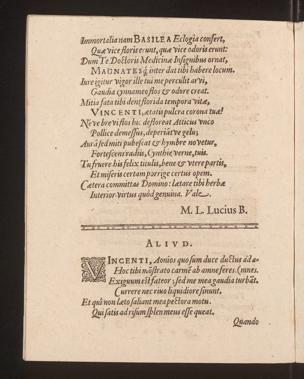 Immortalia nam BASILEA Eclogia consert,
Quæ vice floris erunt, quæ vice odoris erunt:
Dum Te Doctoris Medicinæ Insignibus ornat,
MAGNATES q́; inter dat tibi habere locum.
Iure igitur vigor ille tui me perculit ævi,
Gaudia q́; omne flos & odore creat.
Mitia fata tibi dent florida tempora vitæ,
VINCENTI, ætatis pulcra corona tuæ!
Ne ve brevi flos hoc defloreat Atticus unco
Pollice demessus, depereatve gelu;
Aurâ sed miti pubescat & hymbre novetur,
Fortescens radiis, Cynthie, verne, tuis.
Tu fruere his felix titulis, bene & utere partis,
Et miseris certam porrige certus opem.
Cætera committas Domino: lætare tibi herbæ
Interior virtus quòd genuina. Vale.
M. L. Lucius B.
ALIVD.
VINCENTI, Aonios quo sum duce ductus ad
Hoc tibi nostrato carmē ab amne feres. (mnes.
Exiguum est fateor; sed me mea gaudia turbāt.
Currere nec rivo liquidiore sinunt.
Et quâ non læto saliant mea pectora motu.
Qui satis ad risum splen meus esse queat.
Quando